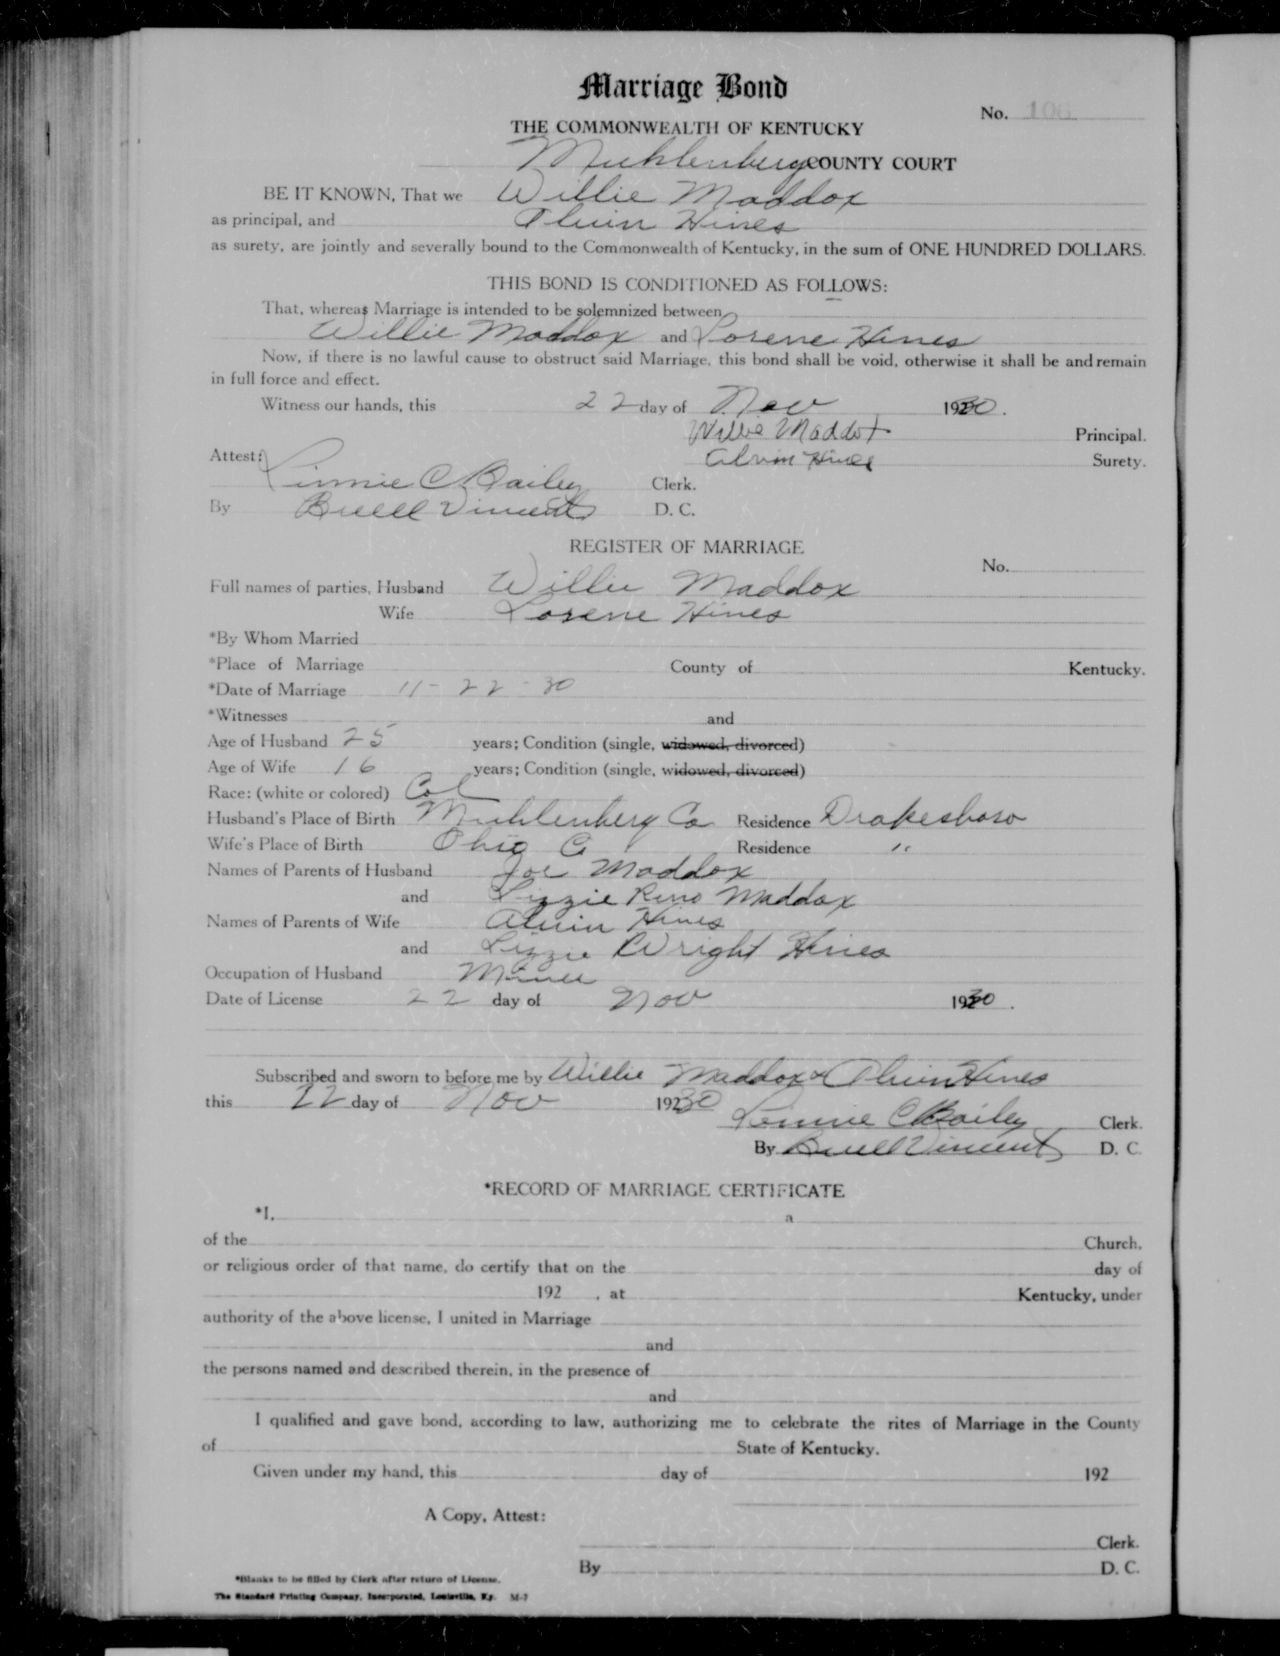 Marriage Bond
No. 106
THE COMMONWEALTH OF KENTUCKY
Muhlenberg COUNTY COURT
BE IT KNOWN, That we Willie Maddox
as principal, and Alvin Hines
as surety, are jointly and severally bound to the Commonwealth of Kentucky, in the sum of ONE HUNDRED DOLLARS.
THIS BOND IS CONDITIONED AS FOLLOWS:
That, whereas Marriage is intended to be solemnized between
Willie Maddox and Lorene Hines
Now, if there is no lawful cause to obstruct said Marriage, this bond shall be void, otherwise it shall be and remain
in full force and effect.
Witness our hands, this 22 day of Nov 1930.
Willie Maddox Principal.
Attest: Alvin Hines Surety.
Linnie C. Bailey Clerk.
By Buell Vincent D. C.
REGISTER OF MARRIAGE
No.
Full names of parties, Husband Willie Maddox
Wife Lorene Hines
*By Whom Married
*Place of Marriage County of Kentucky.
*Date of Marriage 11-22-30
*Witnesses and
Age of Husband 25 years; Condition (single, widowed, divorced)
Age of Wife 16 years; Condition (single, widowed, divorced)
Race: (white or colored) Col
Husband's Place of Birth Muhlenberg Co Residence Drakesboro
Wife's Place of Birth Ohio Co Residence "
Names of Parents of Husband Joe Maddox
and Lizzie Reno Maddox
Names of Parents of Wife Alvin Hines
and Lizzie Wright Hines
Occupation of Husband Miner
Date of License 22 day of Nov 1930.
Subscribed and sworn to before me by Willie Maddox & Alvin Hines
this 22 day of Nov 1930
Linnie C Bailey Clerk.
By Buell Vincent D. C.
*RECORD OF MARRIAGE CERTIFICATE
*I, a
of the Church,
or religious order of that name, do certify that on the day of
192 , at Kentucky, under
authority of the above license, I united in Marriage
and
the persons named and described therein, in the presence of
and
I qualified and gave bond, according to law, authorizing me to celebrate the rites of Marriage in the County
of State of Kentucky.
Given under my hand, this day of 192
A Copy, Attest:
Clerk.
By D. C.
*Blanks to be filled by Clerk after return of License.
The Standard Printing Company, Incorporated, Louisville, Ky. M-7